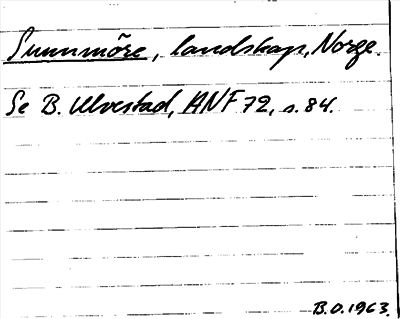 Sunnmöre, landskap, Norge.
Se B. Ulvestad, ANF 72, s. 84.
B.O. 1963.